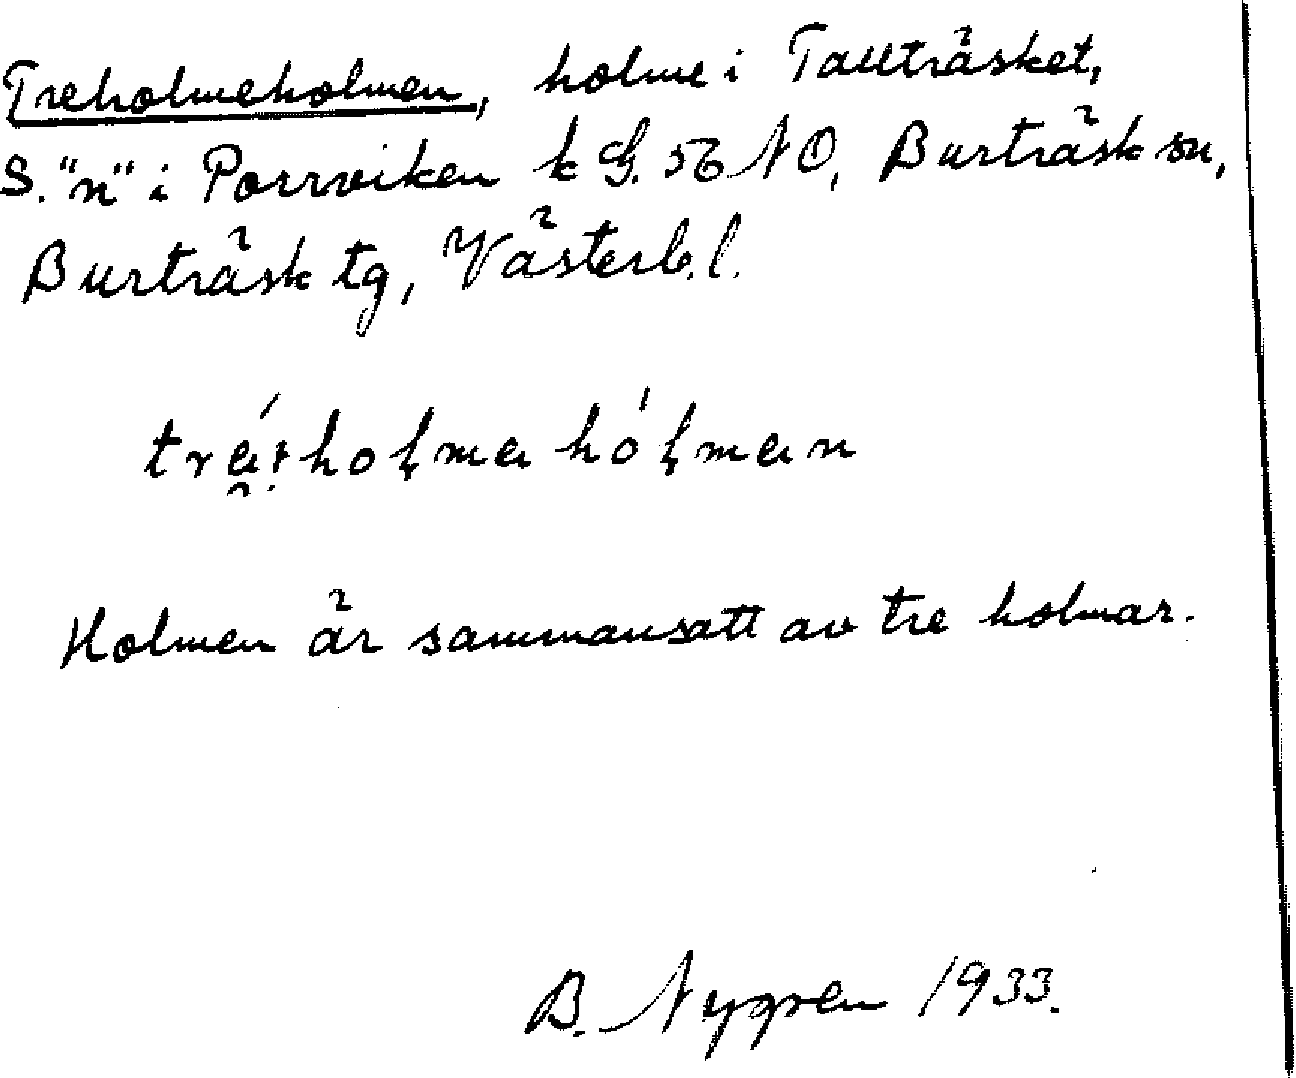 Treholmeholmen, holme i Tallträsket,
S. "n" i Porrviken k G. 56 NO, Burträsk sn,
Burträsk tg, Västerb. l.
Holmen är sammansatt av tre holmar.
B. Nygren 1933.